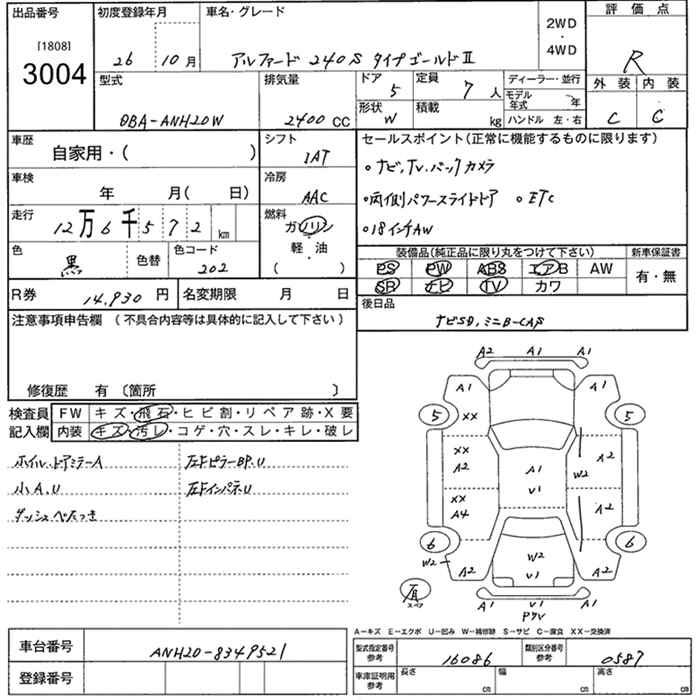 出品番号 初度登録年月 車名・グレード 2WD・4WD 評価点
[1808]
3004
26 10 月 アルファード 240S タイプゴールドⅡ R
型式 排気量 ドア 5 定員 7 人 ディーラー・並行 外装 内装
DBA-ANH20W 2400 CC 形状 W 積載 kg モデル年式 年 ハンドル 左・右 C C
車歴 自家用・( ) シフト IAT
セールスポイント(正常に機能するものに限ります)
・ナビ,TV,バックカメラ
・両側パワースライドドア ・ETC
・18インチAW
車検 年 月( 日) 冷房 AAC
走行 12万6千572 km 燃料 ガソリン 軽・油 ( )
色 黒 色替 色コード 202
装備品(純正品に限り丸をつけて下さい) 新車保証書
PS PW ABS エアB AW 有・無
SR ナビ TV カワ
R券 14,930 円 名変期限 月 日
後日品
ナビSD,ミニB-CAS
注意事項申告欄 (不具合内容等は具体的に記入して下さい)
修復歴 有 〔箇所 〕
検査員 FW キズ・飛石・ヒビ割・リペア跡・X要
記入欄 内装 キズ・汚レ・コゲ・穴・スレ・キレ・破レ
ホイル.ドアミラーA 左FピラーBP.U
小A.U 左FインパネU
ダッシュべたつき
A2 A1 A1
A1 A1
5 XX 5
XX
A2 A1 A2
W2
XX V1
A4 A2
6 6
W2 W2
A2 V1 A2
スペア
A1 V1 A1
A-キズ E-エクボ U-凹み W-補修跡 S-サビ C-腐食 XX-交換済
車台番号 ANH20-8349521
型式指定番号 参考 16086 類別区分番号 参考 0587
登録番号
車庫証明用 参考 長さ cm 幅 cm 高さ cm